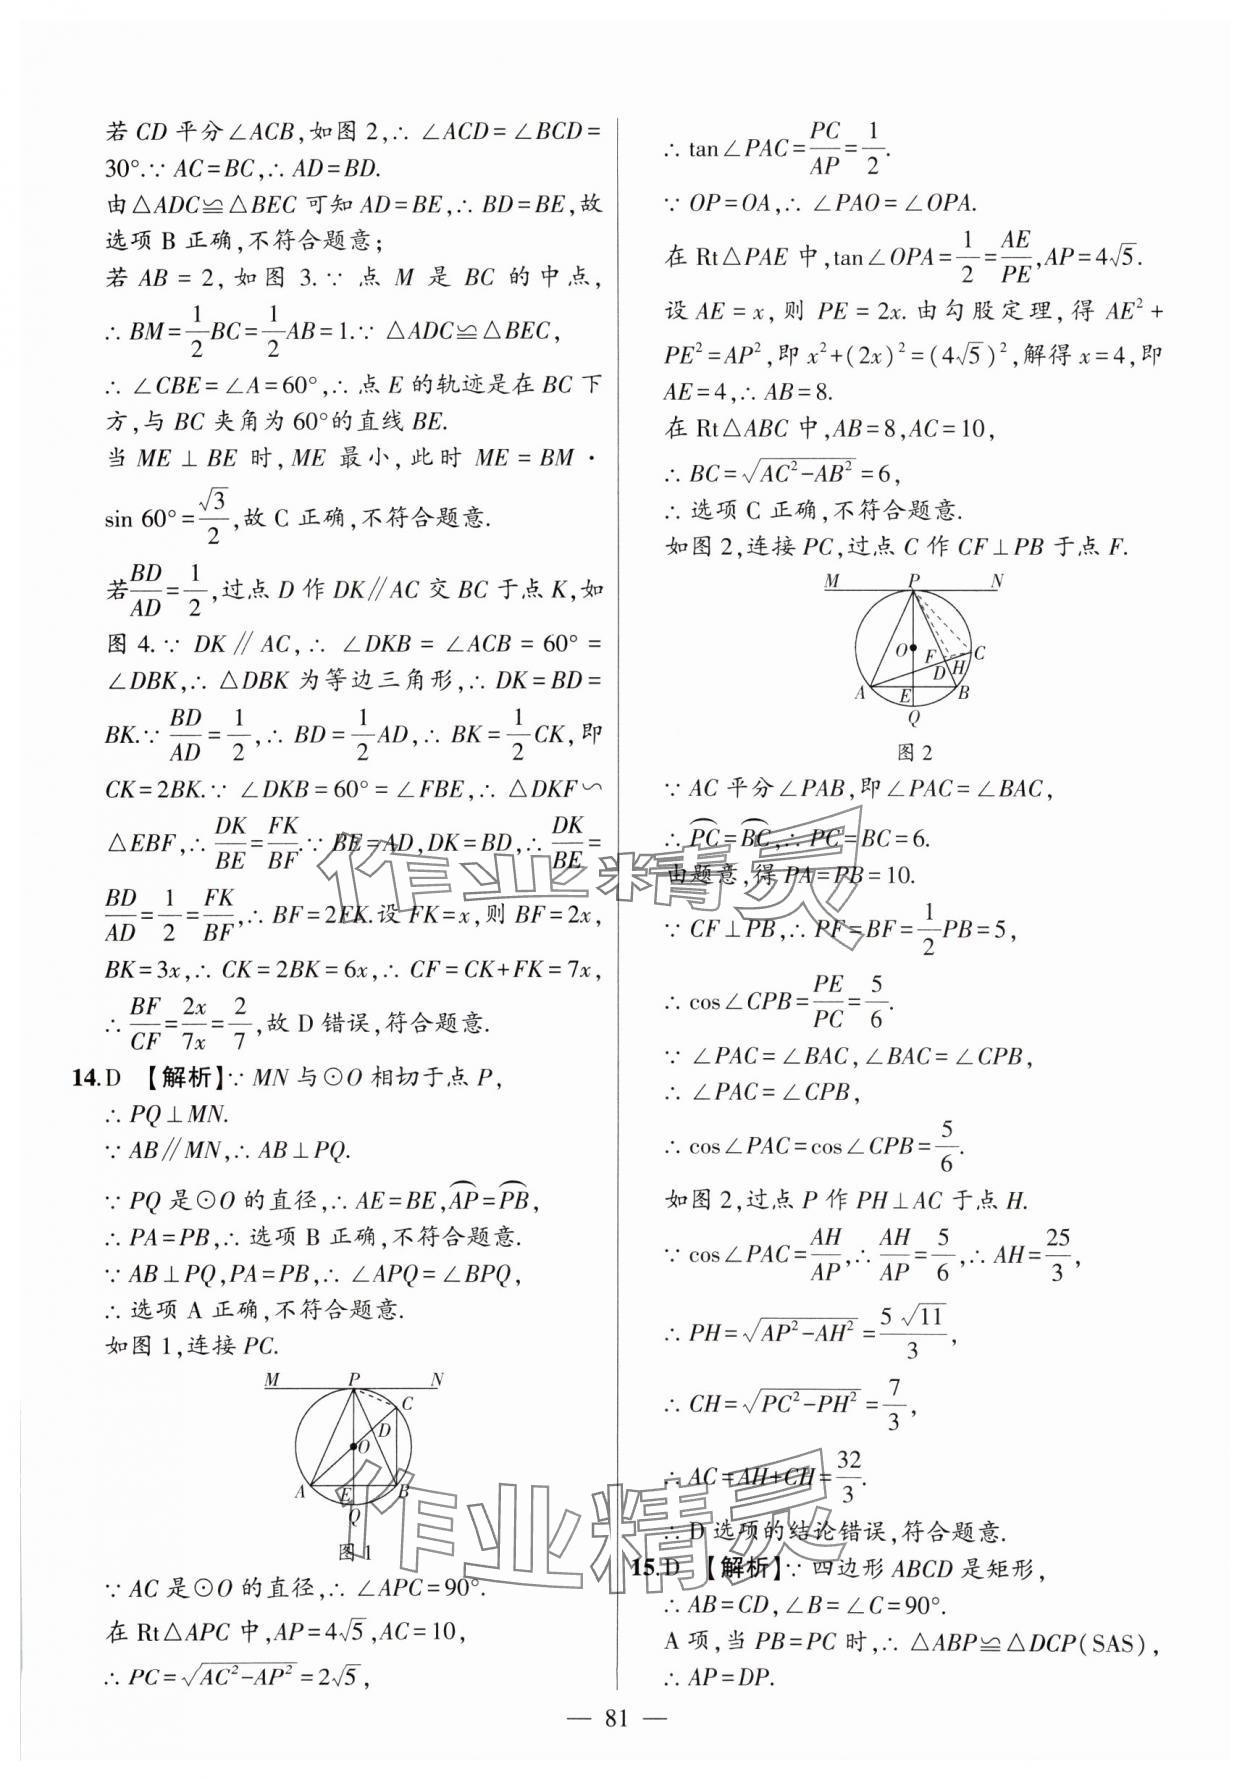 若 CD 平分∠ACB,如图 2,∴ ∠ACD=∠BCD=
30°.∵ AC=BC,∴ AD=BD.
由△ADC≌△BEC 可知 AD=BE,∴ BD=BE,故
选项 B 正确,不符合题意;
若 AB=2,如图 3.∵ 点 M 是 BC 的中点,
∴ BM=1/2 BC=1/2 AB=1.∵ △ADC≌△BEC,
∴ ∠CBE=∠A=60°,∴ 点 E 的轨迹是在 BC 下
方,与 BC 夹角为 60°的直线 BE.
当 ME⊥BE 时,ME 最小,此时 ME=BM·
sin 60°=√3/2,故 C 正确,不符合题意.
若 BD/AD=1/2,过点 D 作 DK∥AC 交 BC 于点 K,如
图 4.∵ DK∥AC,∴ ∠DKB=∠ACB=60°=
∠DBK,∴ △DBK 为等边三角形,∴ DK=BD=
BK.∵ BD/AD=1/2,∴ BD=1/2 AD,∴ BK=1/2 CK,即
CK=2BK.∵ ∠DKB=60°=∠FBE,∴ △DKF∽
△EBF,∴ DK/BE=FK/BF.∵ BE=AD,DK=BD,∴ DK/BE=
BD/AD=1/2=FK/BF,∴ BF=2FK.设 FK=x,则 BF=2x,
BK=3x,∴ CK=2BK=6x,∴ CF=CK+FK=7x,
∴ BF/CF=2x/7x=2/7,故 D 错误,符合题意.
14.D 【解析】∵ MN 与⊙O 相切于点 P,
∴ PQ⊥MN.
∵ AB∥MN,∴ AB⊥PQ.
∵ PQ 是⊙O 的直径,∴ AE=BE,⌒AP=⌒PB,
∴ PA=PB,∴ 选项 B 正确,不符合题意.
∵ AB⊥PQ,PA=PB,∴ ∠APQ=∠BPQ,
∴ 选项 A 正确,不符合题意.
如图 1,连接 PC.
M P N
C
D
O
A E B
Q
图 1
∵ AC 是⊙O 的直径,∴ ∠APC=90°.
在 Rt△APC 中,AP=4√5,AC=10,
∴ PC=√(AC²-AP²)=2√5,
∴ tan∠PAC=PC/AP=1/2.
∵ OP=OA,∴ ∠PAO=∠OPA.
在 Rt△PAE 中,tan∠OPA=1/2=AE/PE,AP=4√5.
设 AE=x,则 PE=2x.由勾股定理,得 AE²+
PE²=AP²,即 x²+(2x)²=(4√5)²,解得 x=4,即
AE=4,∴ AB=8.
在 Rt△ABC 中,AB=8,AC=10,
∴ BC=√(AC²-AB²)=6,
∴ 选项 C 正确,不符合题意.
如图 2,连接 PC,过点 C 作 CF⊥PB 于点 F.
M P N
O F C
D H
A E B
Q
图 2
∵ AC 平分∠PAB,即∠PAC=∠BAC,
∴ ⌒PC=⌒BC,∴ PC=BC=6.
由题意,得 PA=PB=10.
∵ CF⊥PB,∴ PF=BF=1/2 PB=5,
∴ cos∠CPB=PE/PC=5/6.
∵ ∠PAC=∠BAC,∠BAC=∠CPB,
∴ ∠PAC=∠CPB,
∴ cos∠PAC=cos∠CPB=5/6.
如图 2,过点 P 作 PH⊥AC 于点 H.
∵ cos∠PAC=AH/AP,∴ AH/AP=5/6,∴ AH=25/3,
∴ PH=√(AP²-AH²)=5√11/3,
∴ CH=√(PC²-PH²)=7/3,
∴ AC=AH+CH=32/3.
∴ D 选项的结论错误,符合题意.
15.D 【解析】∵ 四边形 ABCD 是矩形,
∴ AB=CD,∠B=∠C=90°.
A 项,当 PB=PC 时,∴ △ABP≌△DCP(SAS),
∴ AP=DP.
— 81 —
作业精灵
作业精灵